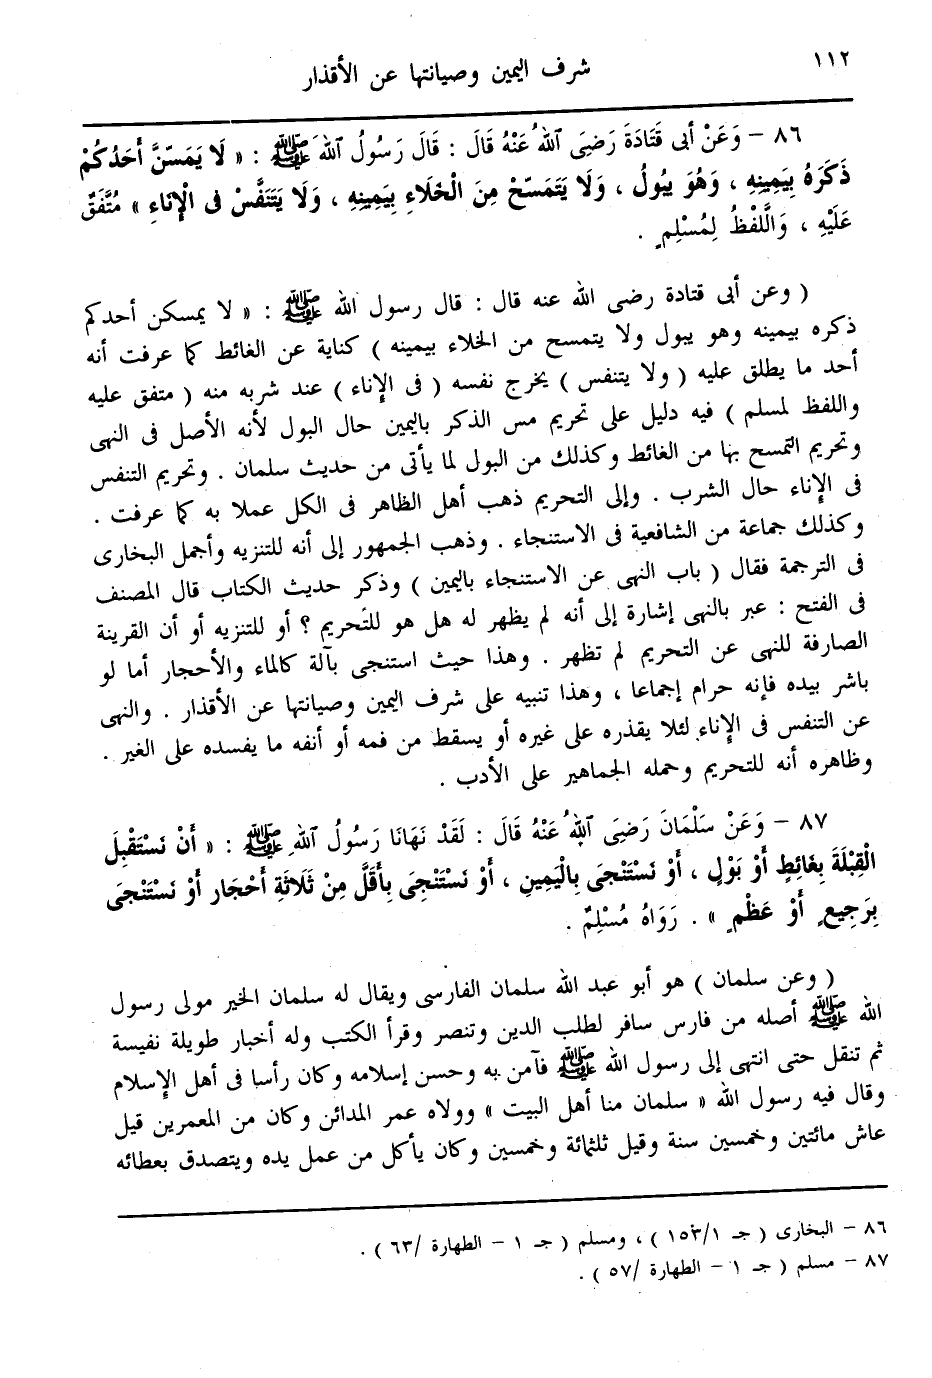 ١١٢
شرف اليمين وصيانتها عن الأقذار
٨٦ – وَعَنْ أبى قَتَادَةَ رَضِىَ اللهُ عَنْهُ قَالَ : قَالَ رَسُولُ اللهِ ﷺ : « لَا يَمَسَّنَّ أَحَدُكُمْ
ذَكَرَهُ بِيَمِينِهِ ، وَهُوَ يَبُولُ ، وَلَا يَتَمَسَّحْ مِنَ الْخَلَاءِ بِيَمِينِهِ ، وَلَا يَتَنَفَّسْ فى الْإِنَاءِ » مُتَّفَقٌ
عَلَيْهِ ، وَالَّلفْظُ لِمُسْلِمٍ .
( وعن أبى قتادة رضى الله عنه قال : قال رسول الله ﷺ : « لا يمسكن أحدكم
ذكره بيمينه وهو يبول ولا يتمسح من الخلاء بيمينه ) كناية عن الغائط كما عرفت أنه
أحد ما يطلق عليه ( ولا يتنفس ) يخرج نفسه ( فى الإناء ) عند شربه منه ( متفق عليه
واللفظ لمسلم ) فيه دليل على تحريم مس الذكر باليمين حال البول لأنه الأصل فى النهى
وتحريم التمسح بها من الغائط وكذلك من البول لما يأتى من حديث سلمان . وتحريم التنفس
فى الإناء حال الشرب . وإلى التحريم ذهب أهل الظاهر فى الكل عملا به كما عرفت .
وكذلك جماعة من الشافعية فى الاستنجاء . وذهب الجمهور إلى أنه للتنزيه وأجمل البخارى
فى الترجمة فقال ( باب النهى عن الاستنجاء باليمين ) وذكر حديث الكتاب قال المصنف
فى الفتح : عبر بالنهى إشارة إلى أنه لم يظهر له هل هو للتحريم ؟ أو للتنزيه أو أن القرينة
الصارفة للنهى عن التحريم لم تظهر . وهذا حيث استنجى بآلة كالماء والأحجار أما لو
باشر بيده فإنه حرام إجماعا ، وهذا تنبيه على شرف اليمين وصيانتها عن الأقذار . والنهى
عن التنفس فى الإناء لئلا يقذره على غيره أو يسقط من فمه أو أنفه ما يفسده على الغير .
وظاهره أنه للتحريم وحمله الجماهير على الأدب .
٨٧ – وَعَنْ سَلْمَانَ رَضِىَ اللهُ عَنْهُ قَالَ : لَقَدْ نَهَانَا رَسُولُ اللهِ ﷺ : « أَنْ نَسْتَقْبِلَ
الْقِبْلَةَ بِغَائِطٍ أَوْ بَوْلٍ ، أَوْ نَسْتَنْجِىَ بِالْيَمِينِ ، أَوْ نَسْتَنْجِىَ بِأَقَلَّ مِنْ ثَلَاثَةِ أَحْجَارٍ أَوْ نَسْتَنْجِىَ
بِرَجِيعٍ أَوْ عَظْمٍ » . رَوَاهُ مُسْلِمٌ .
( وعن سلمان ) هو أبو عبد الله سلمان الفارسى ويقال له سلمان الخير مولى رسول
الله ﷺ أصله من فارس سافر لطلب الدين وتنصر وقرأ الكتب وله أخبار طويلة نفيسة
ثم تنقل حتى انتهى إلى رسول الله ﷺ فآمن به وحسن إسلامه وكان رأسا فى أهل الإسلام
وقال فيه رسول الله « سلمان منا أهل البيت » وولاه عمر المدائن وكان من المعمرين قيل
عاش مائتين وخمسين سنة وقيل ثلثمائة وخمسين وكان يأكل من عمل يده ويتصدق بعطائه
٨٦ – البخارى ( جـ ١/١٥٣ ) ، ومسلم ( جـ ١ – الطهارة /٦٣ ) .
٨٧ – مسلم ( جـ ١ – الطهارة /٥٧ ) .